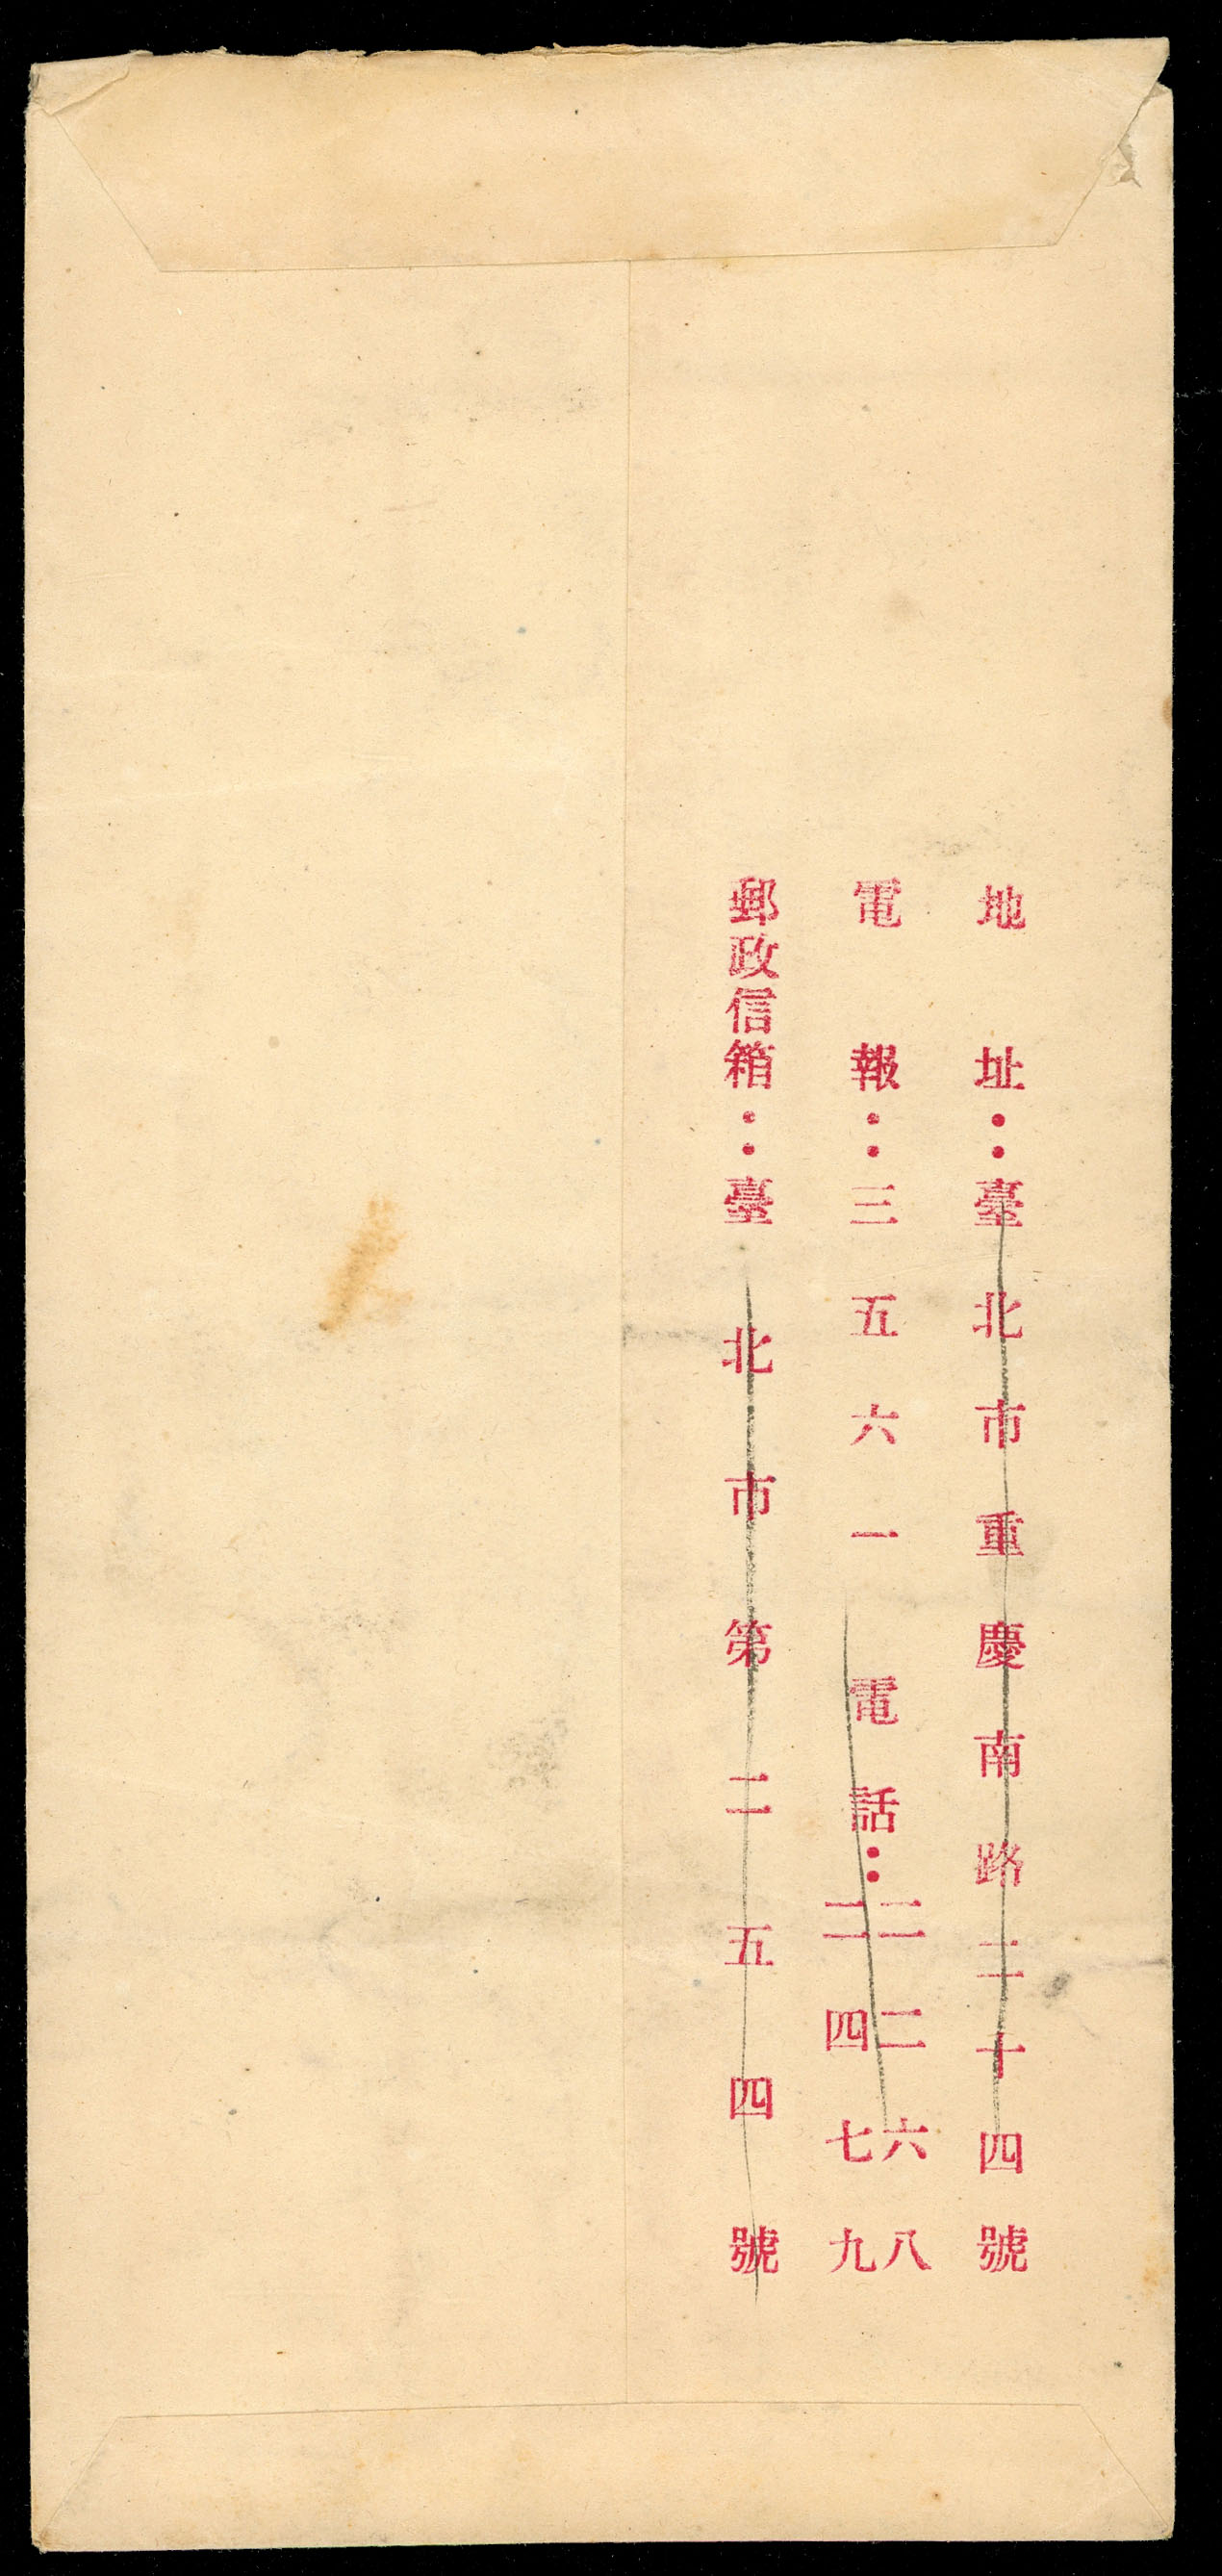 地址：臺北市重慶南路二十四號
電報：三五六一　電話：二二六八
二四七九
郵政信箱：臺北市第二五四號